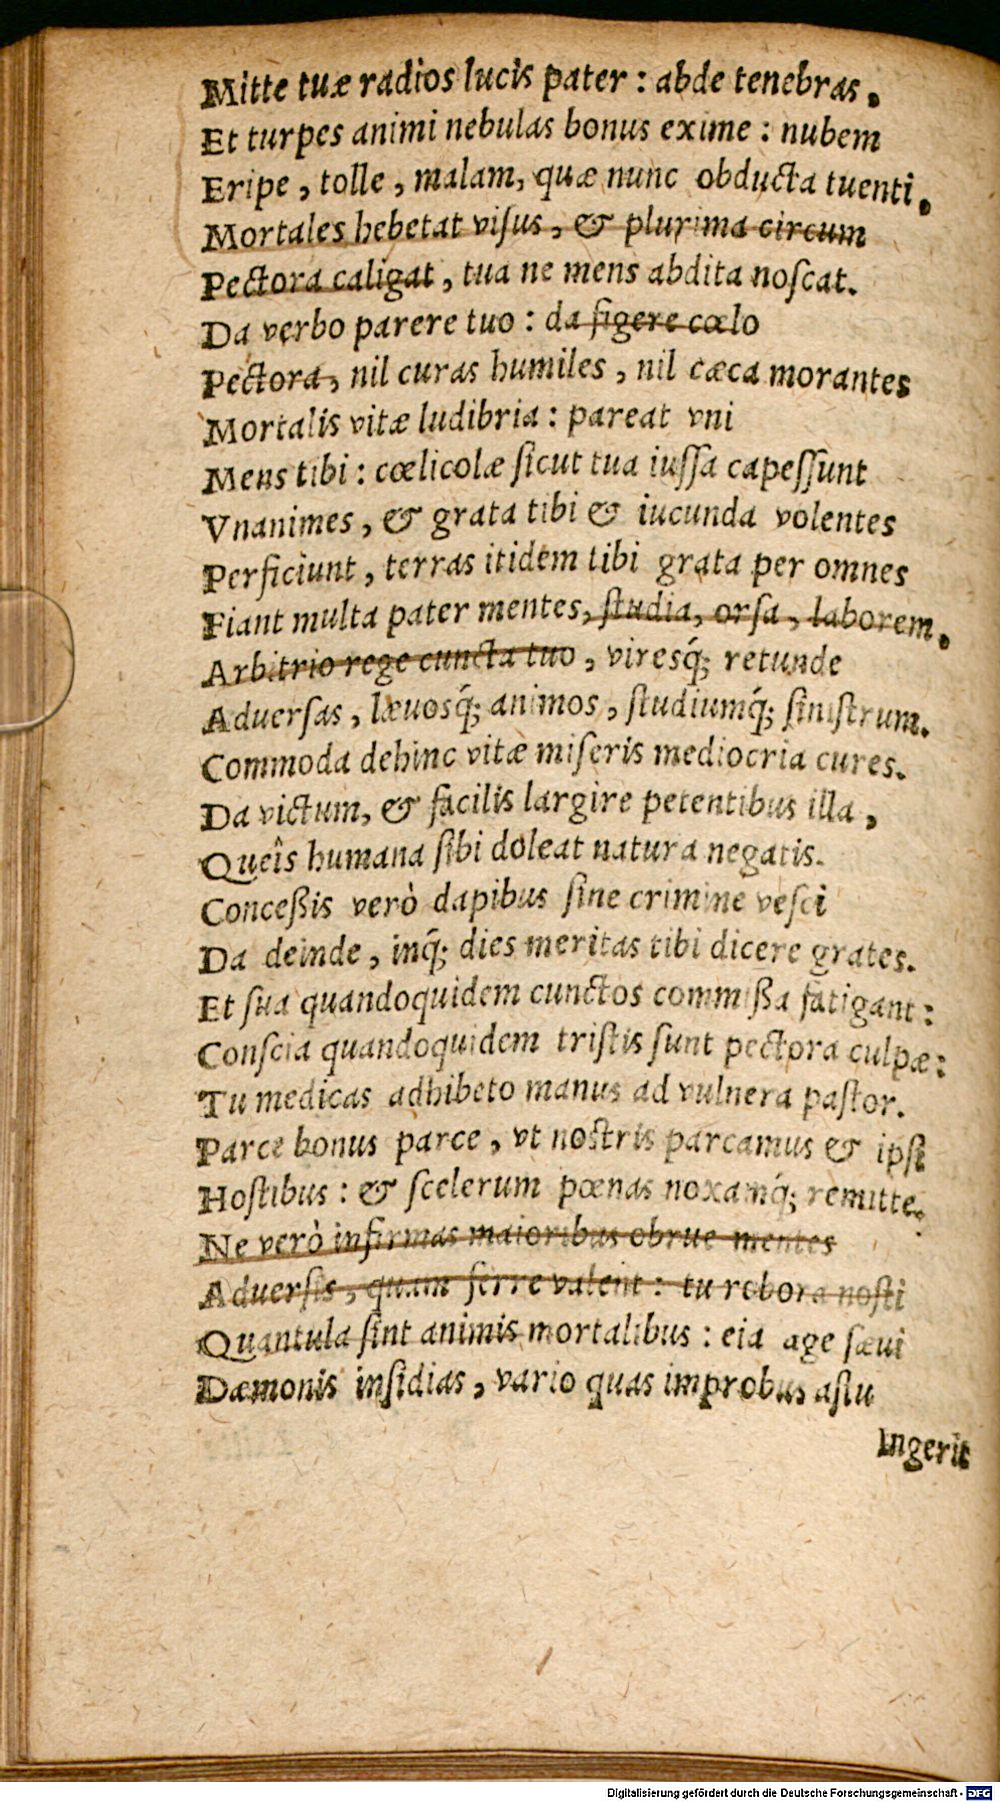 Mitte tuæ radios lucis pater : abde tenebras.
Et turpes animi nebulas bonus exime : nubem
Eripe, tolle, malam, quæ nunc obducta tuenti.
Mortales hebetat viſus, & plurima circum
Pectora caligat, tua ne mens abdita noſcat.
Da verbo parere tuo : da figere cœlo
Pectora, nil curas humiles, nil cæca morantes
Mortalis vitæ ludibria : pareat vni
Mens tibi : cœlicolæ ſicut tua iuſſa capeſſunt
Vnanimes, & grata tibi & iucunda volentes
Perficiunt, terras itidem tibi grata per omnes
Fiant multa pater mentes, ſtudia, orſa, laborem.
Arbitrio rege cuncta tuo, viresq́; retunde
Aduerſas, læuosq́; animos, ſtudiumq́; ſiniſtrum.
Commoda dehinc vitæ miſeris mediocria cures.
Da victum, & facilis largire petentibus illa,
Queîs humana ſibi doleat natura negatis.
Conceßis verò dapibus ſine crimine veſci
Da deinde, inq́; dies meritas tibi dicere grates.
Et ſua quandoquidem cunctos commißa fatigant :
Conſcia quandoquidem triſtis ſunt pectora culpæ :
Tu medicas adhibeto manus ad vulnera paſtor.
Parce bonus parce, vt noſtris parcamus & ipſi
Hoſtibus : & ſcelerum pœnas noxamq́; remitte.
Ne verò infirmas maioribus obrue mentes
Aduerſis, quam ferre valent : tu robora noſti
Quantula ſint animis mortalibus : eia age ſæui
Dæmonis inſidias, vario quas improbus aſtu
Ingerit
Digitalisierung gefördert durch die Deutsche Forschungsgemeinschaft - DFG